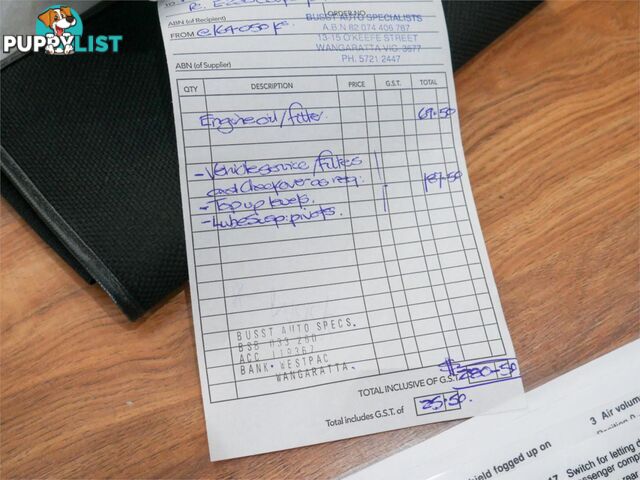 PUPPYLIST
ORDER NO
ABN (of Recipient)
FROM @ 164,050 K's.
BUSST AUTO SPECIALISTS
A.B.N 82 074 406 767
13-15 O'KEEFE STREET
WANGARATTA VIC. 3677
PH. 5721 2447
ABN (of Supplier)
QTY DESCRIPTION PRICE G.S.T. TOTAL
Engine oil/filter. 69.50
- Vehicle service/filters
and Checkover as req. 187.50
- Top up levels.
- Lube susp: pivots.
BUSST AUTO SPECS.
BSB 033 260
ACC 119367
BANK. WESTPAC
WANGARATTA.
TOTAL INCLUSIVE OF G.S.T. $280-50
Total includes G.S.T. of 25.50.
shield fogged up on
3 Air volum
17 Switch for letting
passenger comp
rear